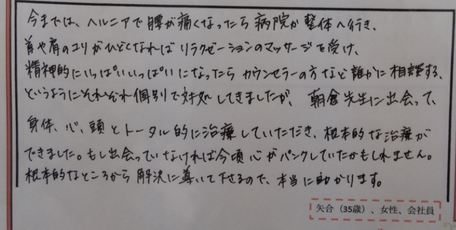 今までは、ヘルニアで腰が痛くなったら病院か整体へ行き、
首や肩のコリがひどくなればリラクゼーションのマッサージを受け、
精神的にいっぱいいっぱいになったらカウンセラーの方など誰かに相談する、
というようにそれぞれ個別で対処してきましたが、朝倉先生に出会って、
身体、心、頭とトータル的に治療していただき、根本的な治療が
できました。もし出会っていなければ今頃心がパンクしていたかもしれません。
根本的なところから解決に導いて下さるので、本当に助かります。
矢合(35歳)、女性、会社員